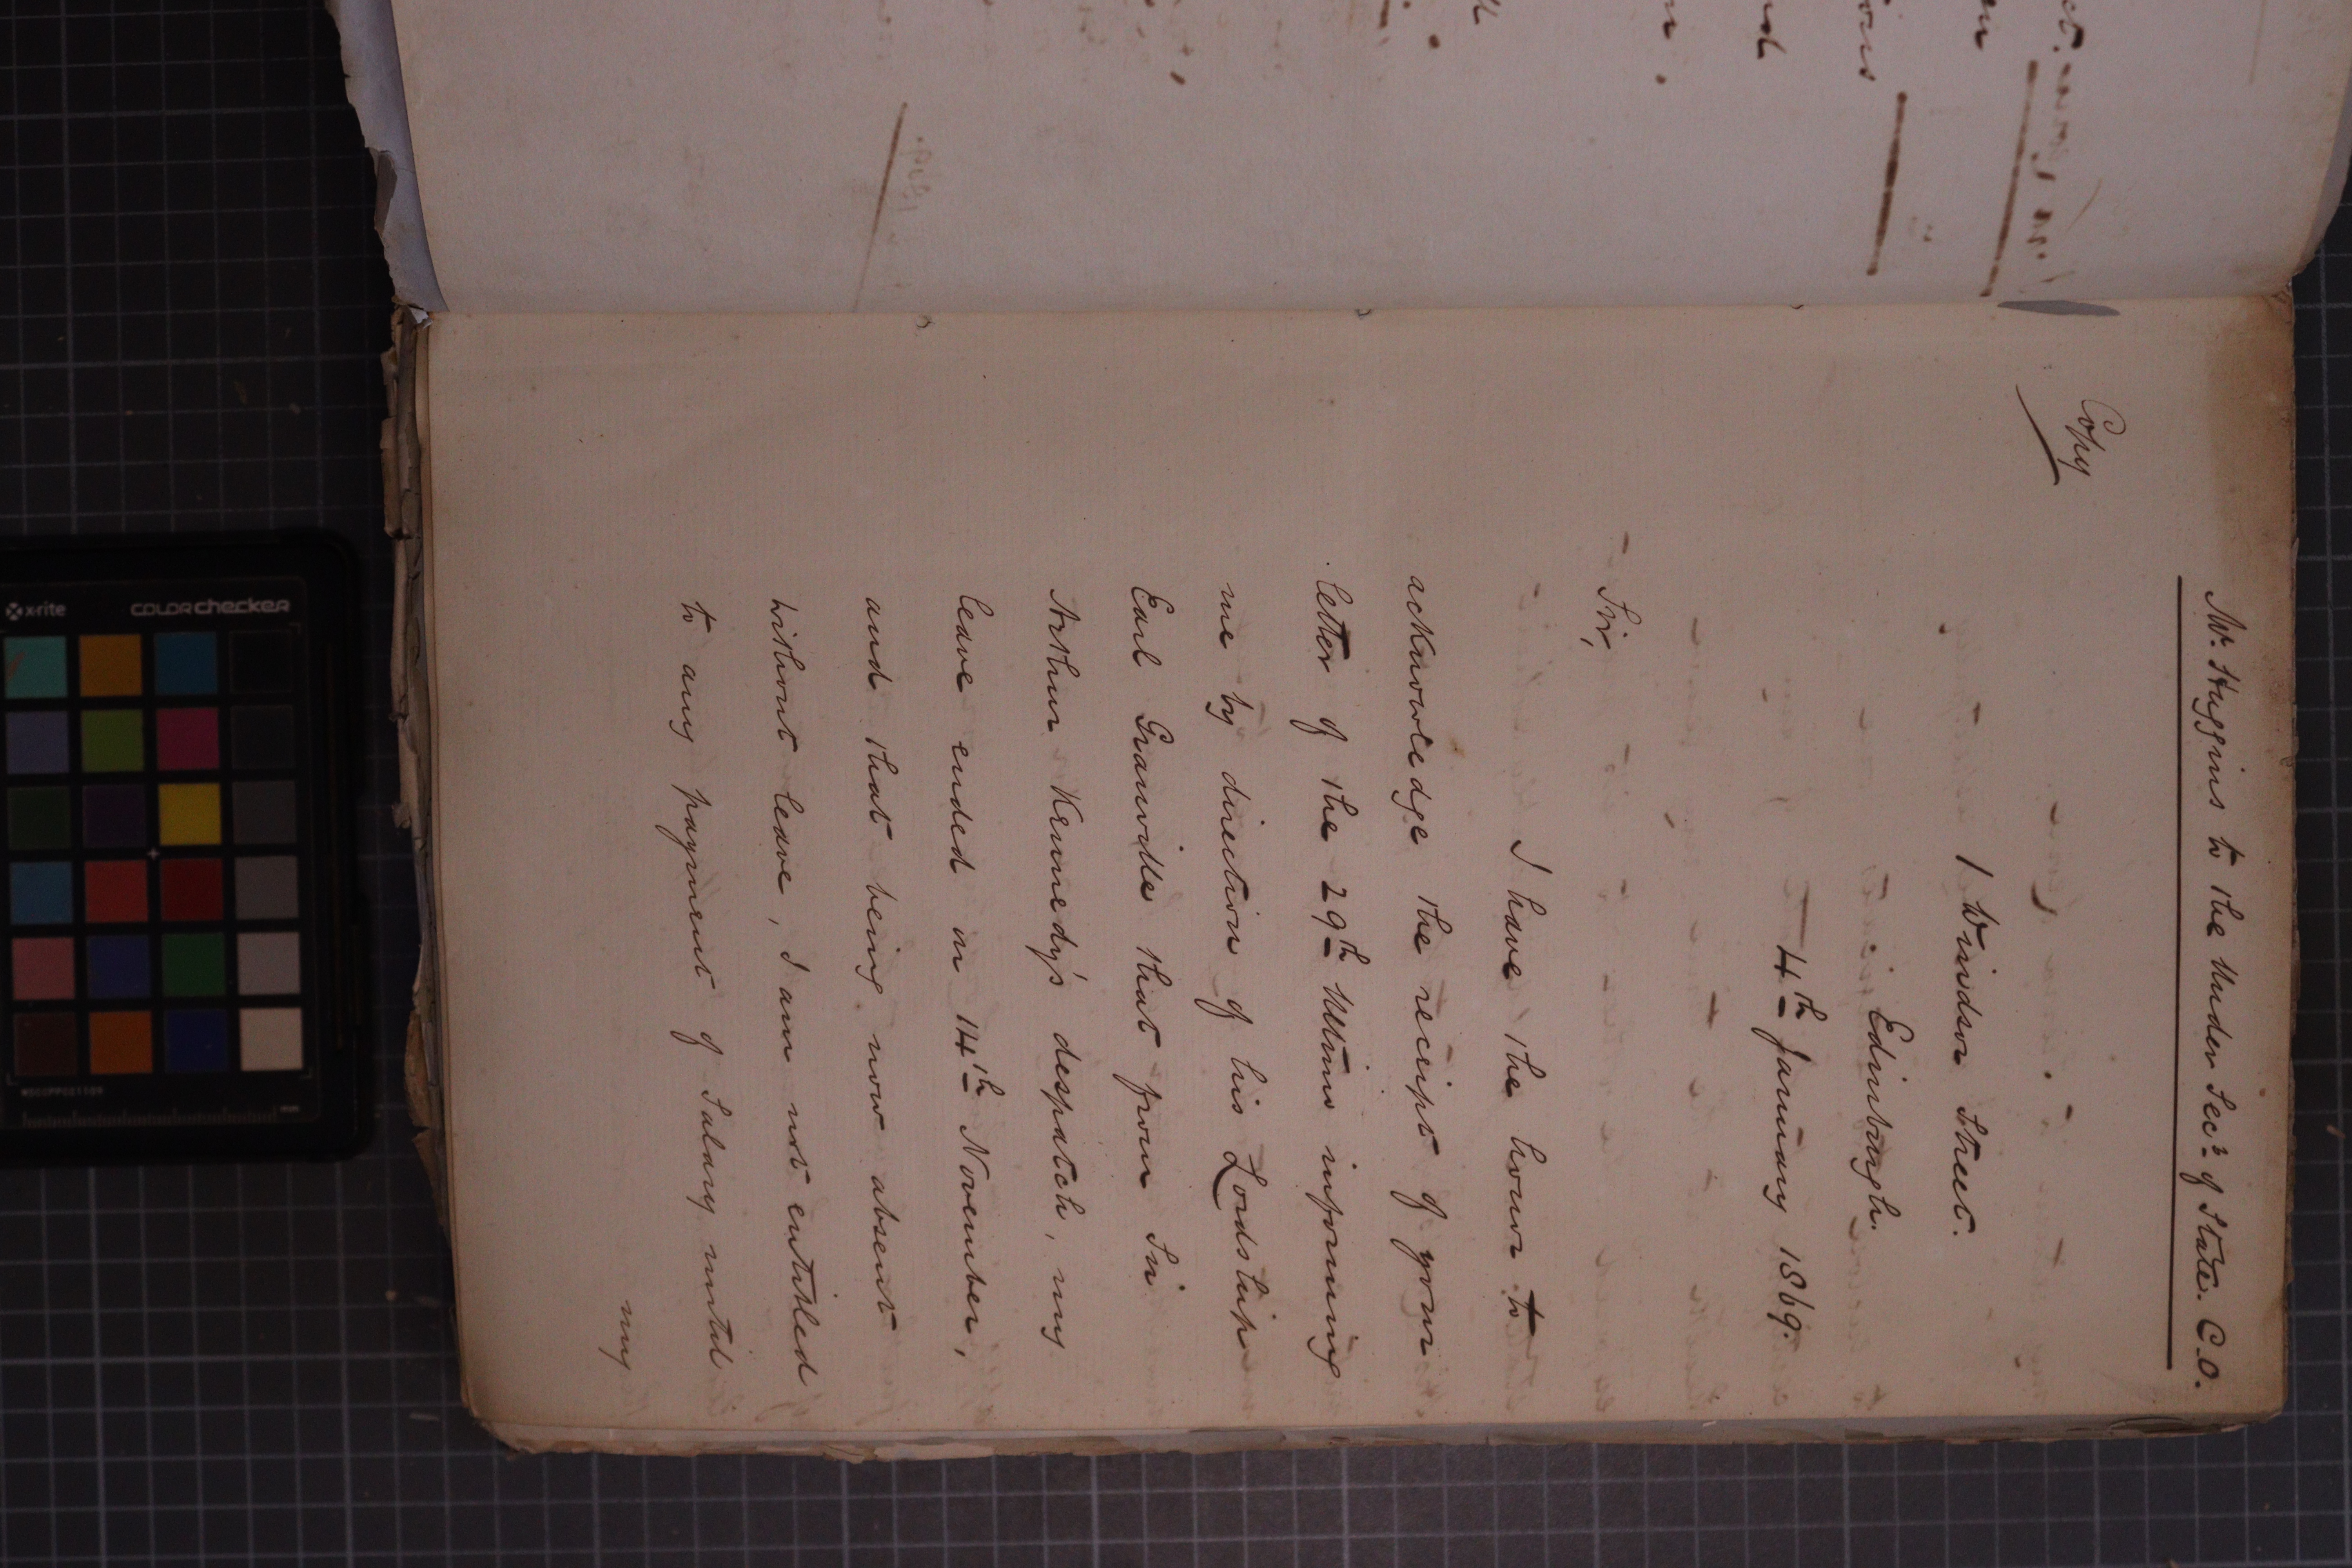 Mr. Huggins to the Under Secy. of State. C.O.
Copy
1 Windsor Street.
Edinburgh.
4th January 1869.
Sir,
I have the honor to
acknowledge the receipt of your
letter of the 29th Ultimo informing
me by direction of his Lordship
Earl Granville that from Sir
Arthur Kennedy's despatch, my
leave ended on 14th November,
and that being now absent
without leave, I am not entitled
to any payment of Salary until
my
x-rite
colorchecker
mm